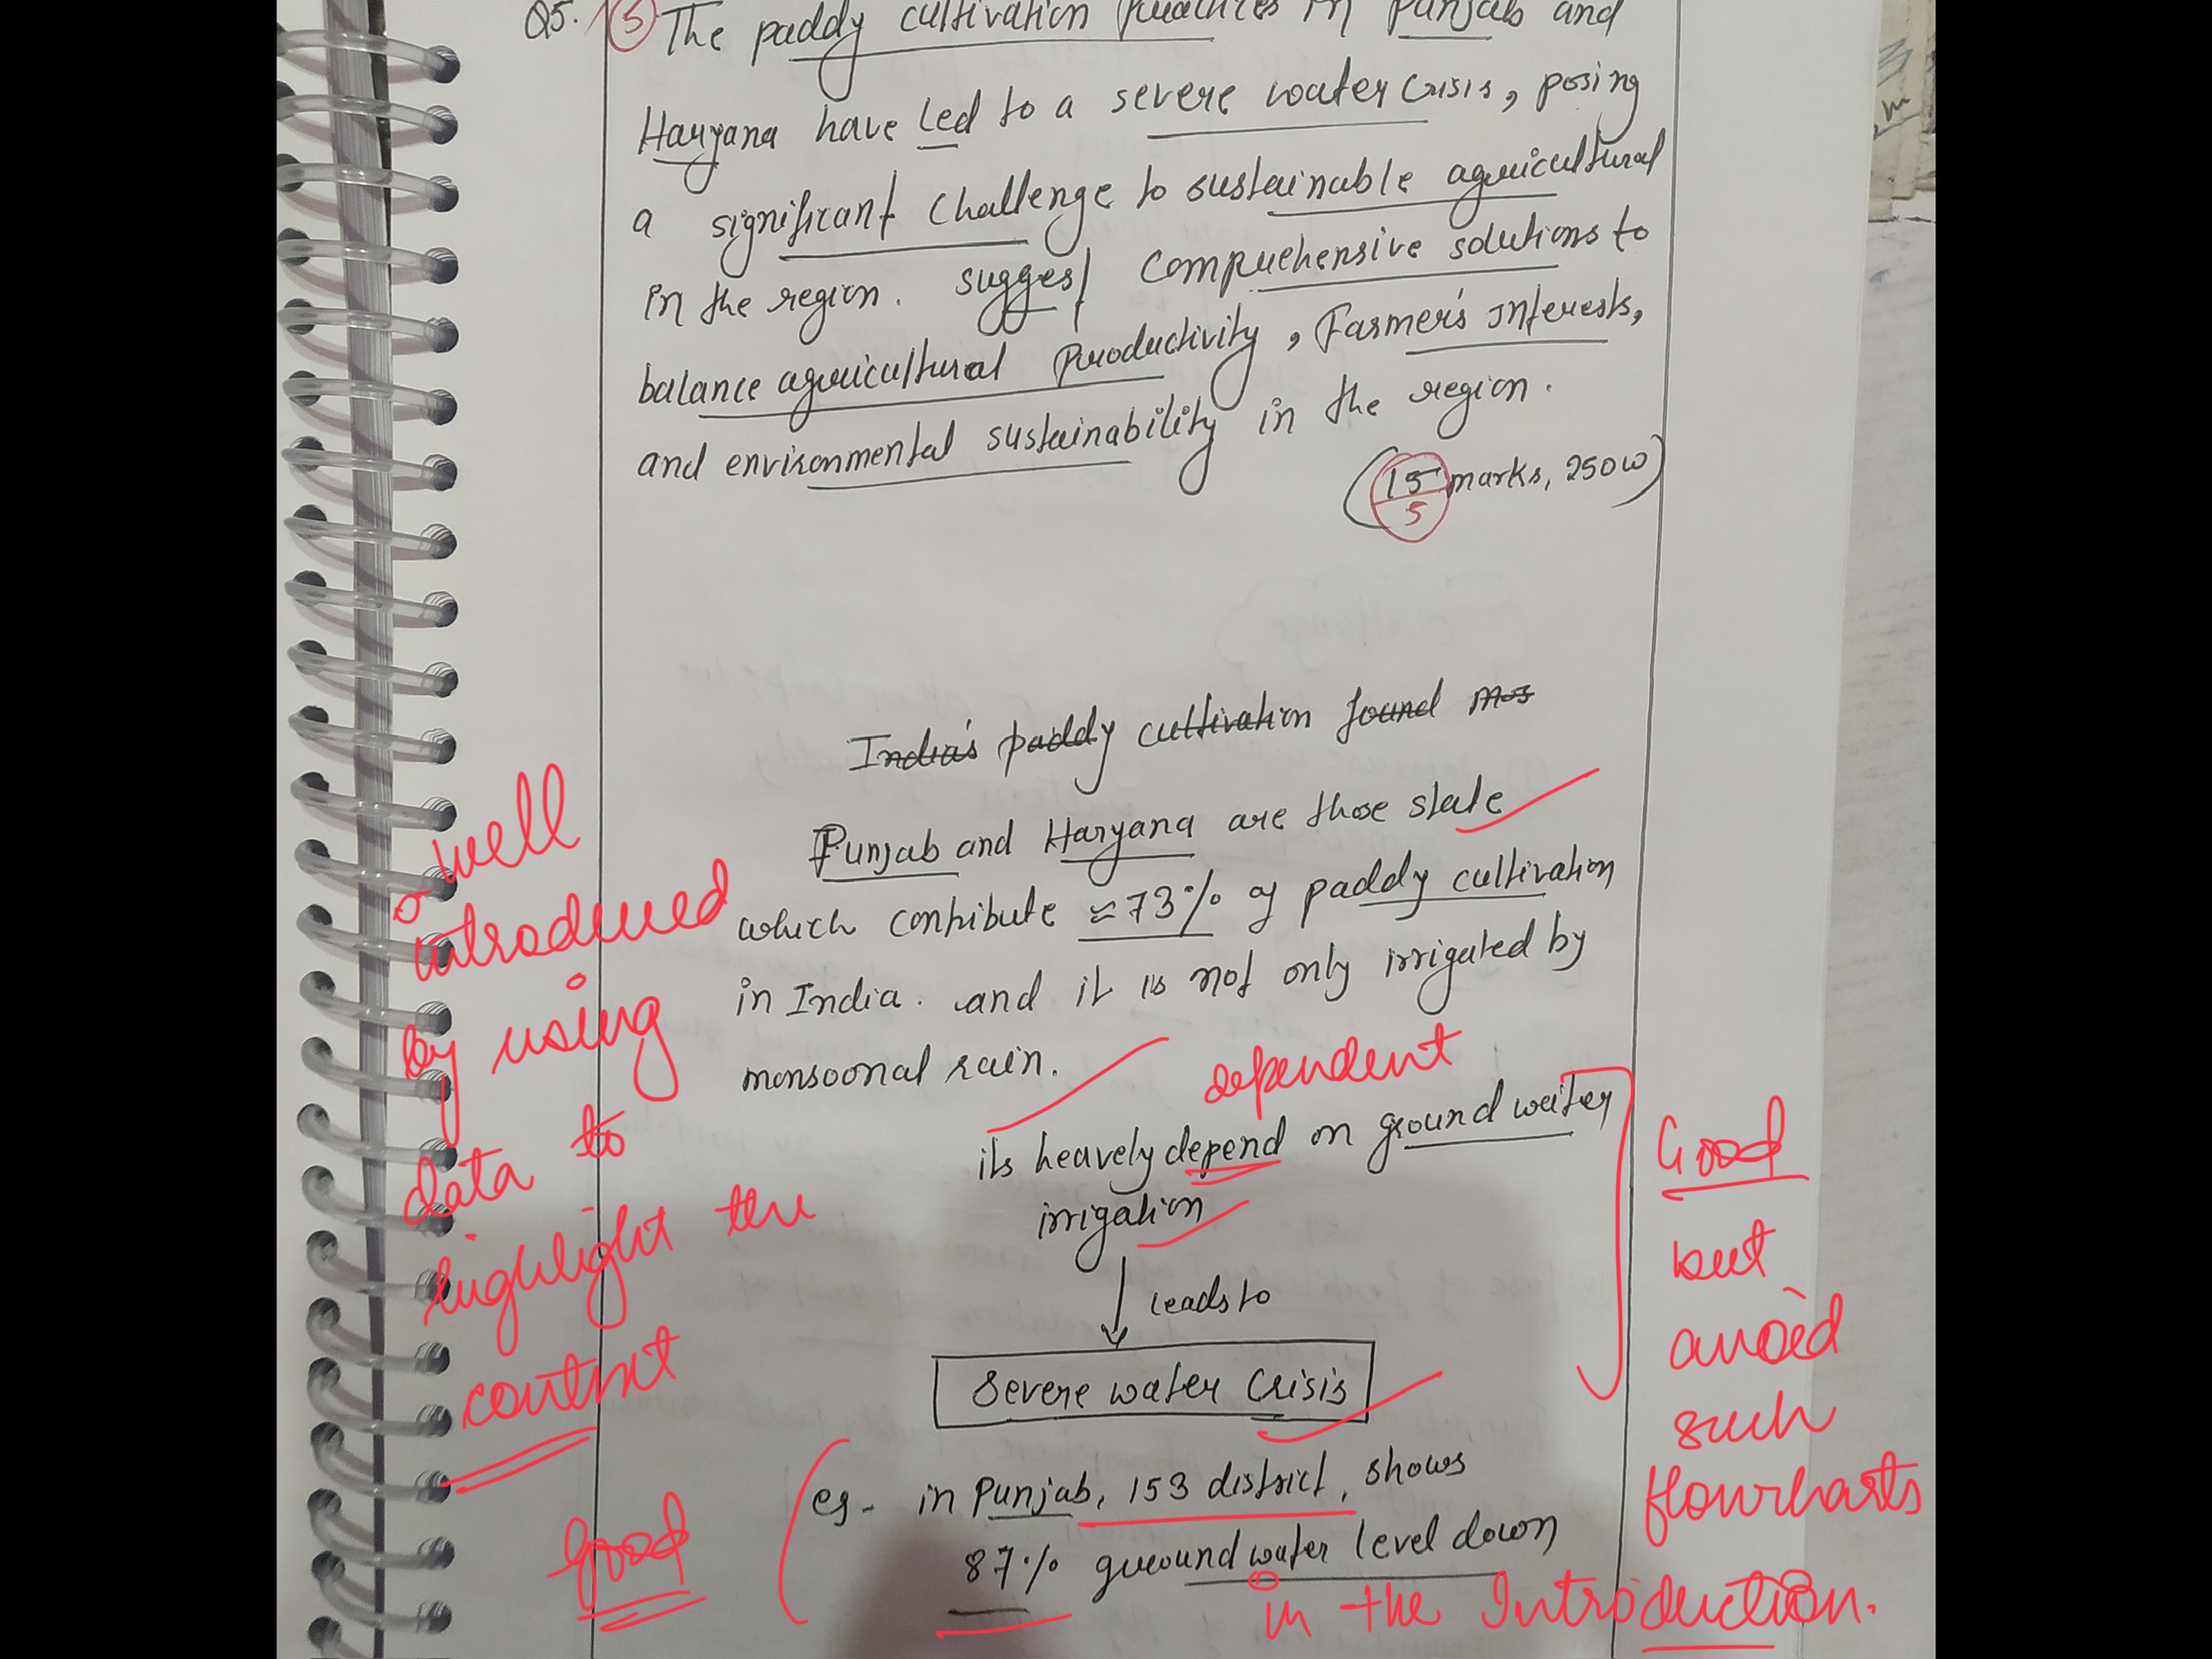 Q5. (5) The paddy cultivation practices in Punjab and
Haryana have led to a severe water crisis, posing
a significant challenge to sustainable agricultural
in the region. suggest comprehensive solutions to
balance agricultural productivity, Farmer's Interests,
and environmental sustainability in the region.
(15 marks, 250w)
5
India's paddy cultivation found mos
Punjab and Haryana are those state
which contribute ≈73% of paddy cultivation
in India. and it is not only irrigated by
monsoonal rain.
dependent
its heavely depend on ground water
irrigation
↓ leads to
Severe water Crisis
eg- in Punjab, 153 district, shows
87% ground water level down
well
introduced
by using
data to
highlight the
context
Good
Good
but
avoid
such
flowcharts
in the Introduction.